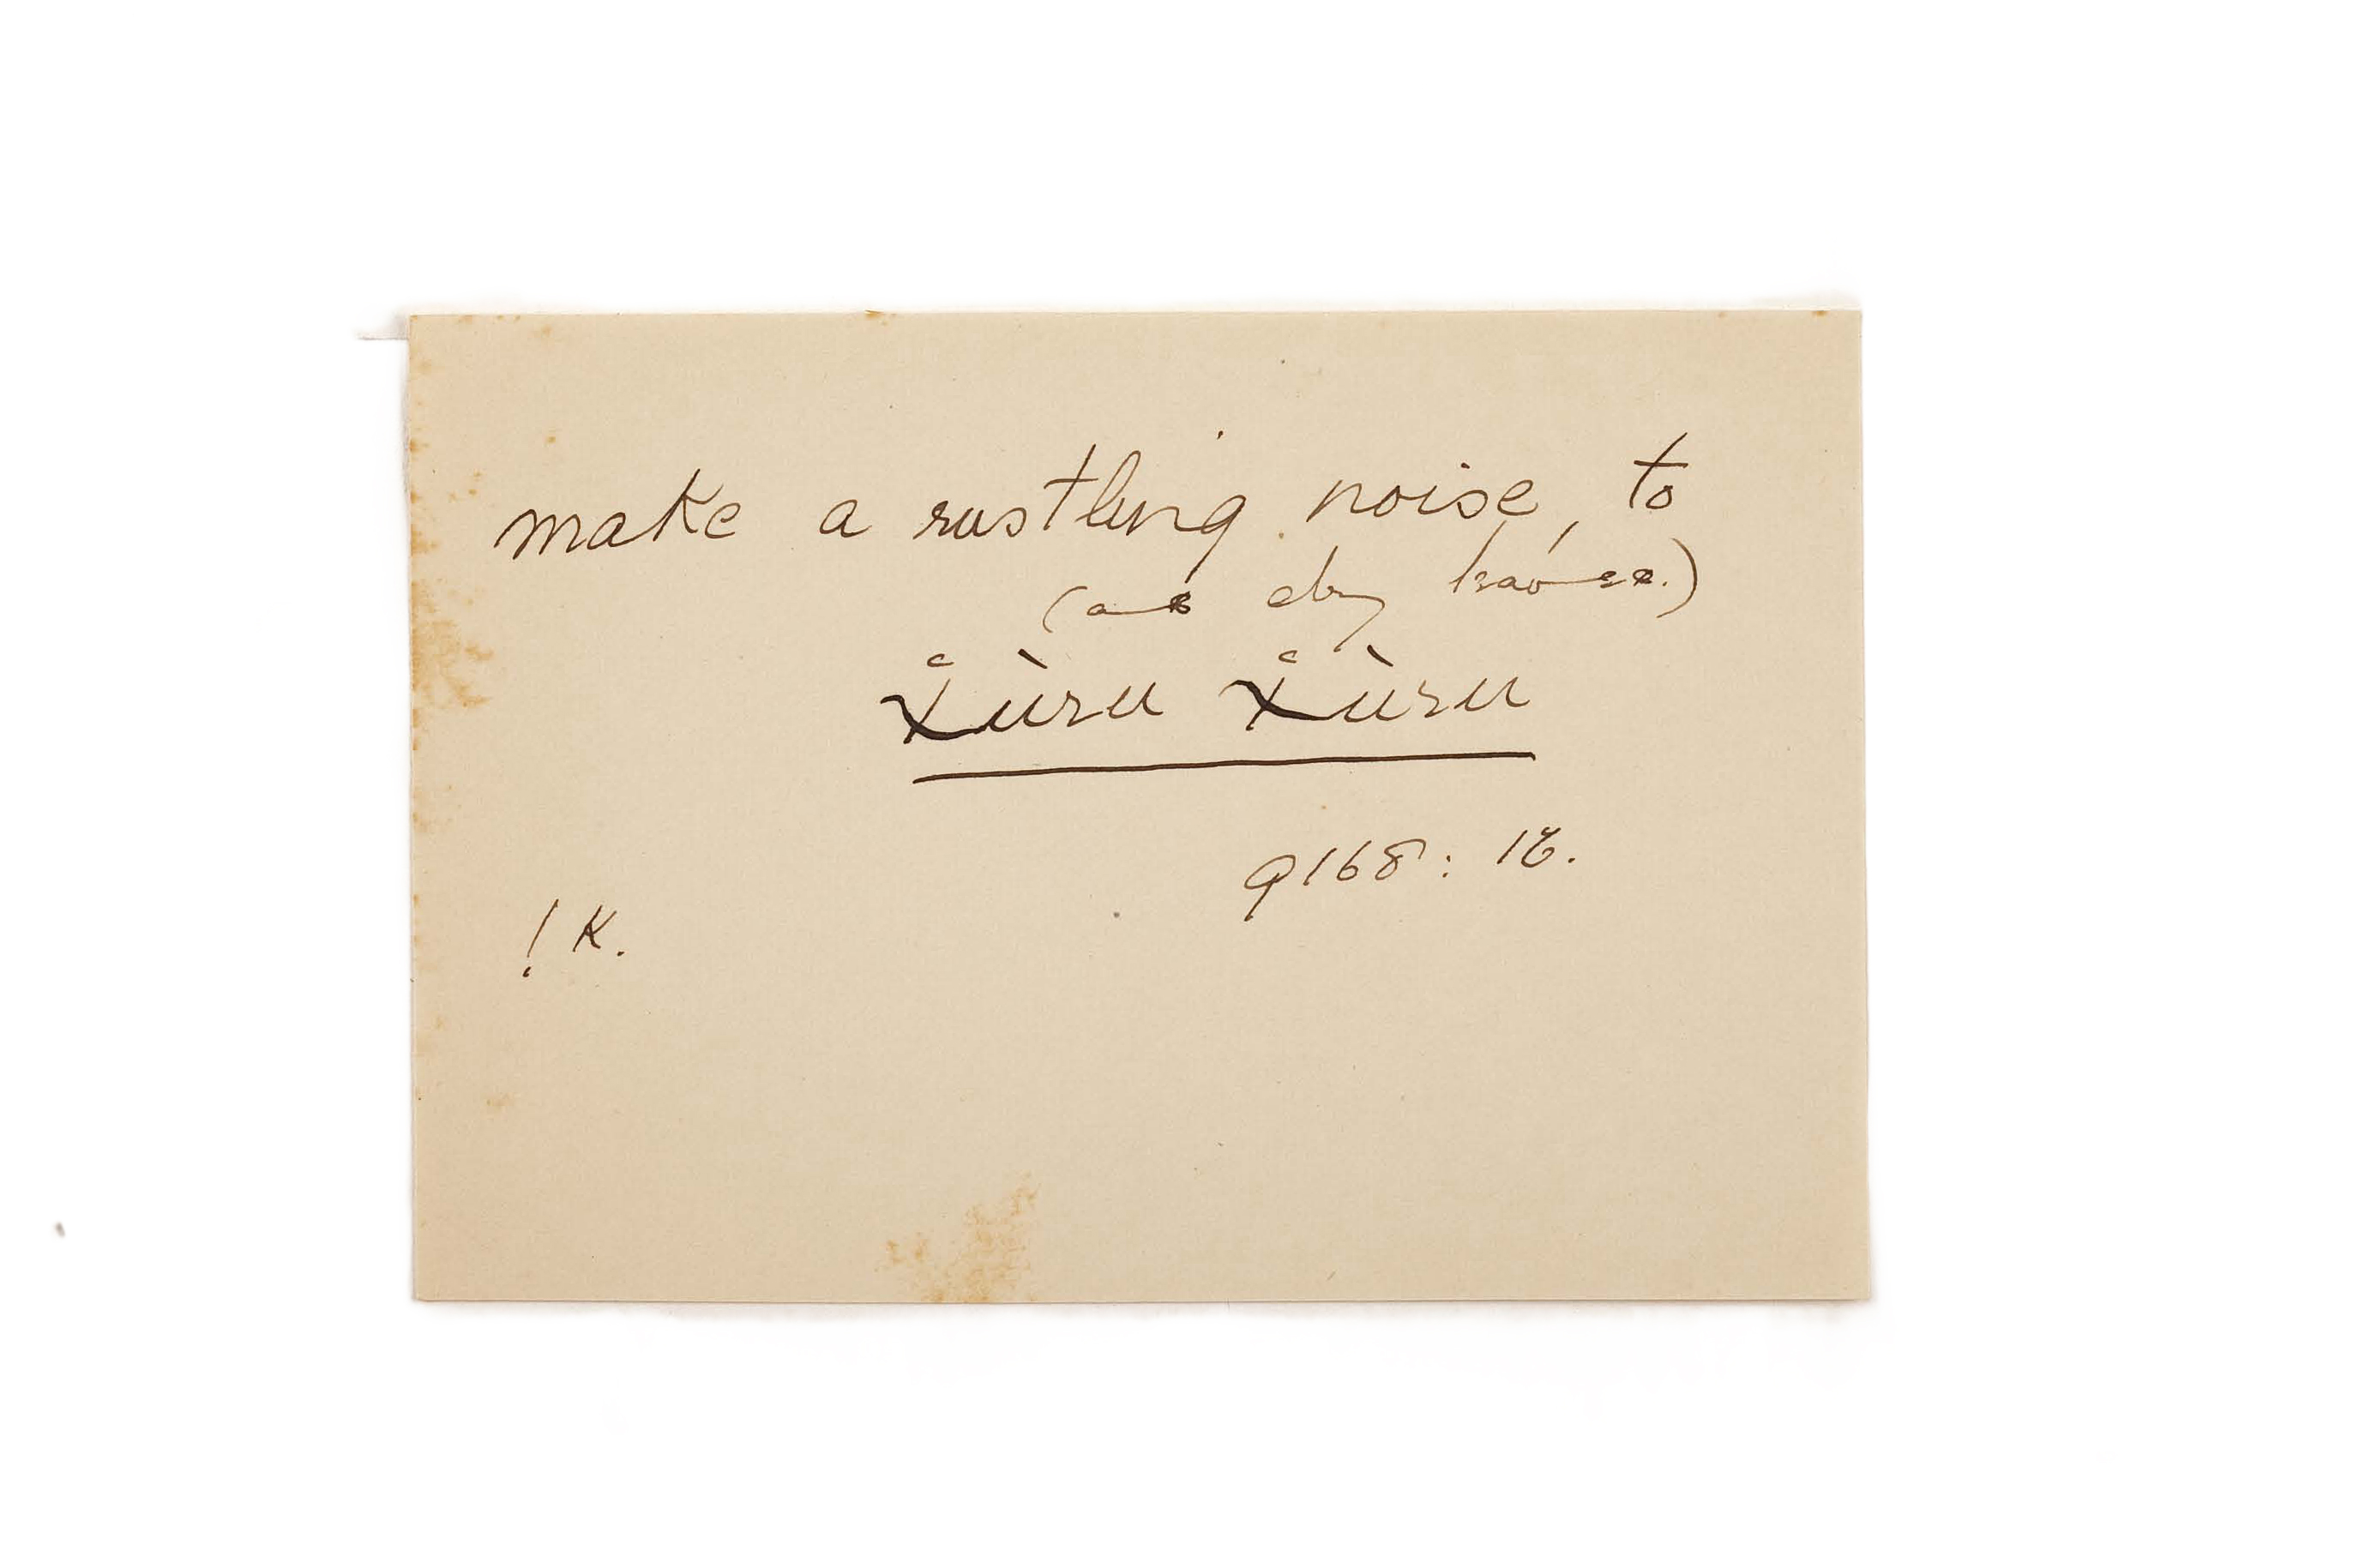 make a rustling noise, to
(as dry leaves.)
χ̆ùru χ̆ùru
9168: 18.
! K.